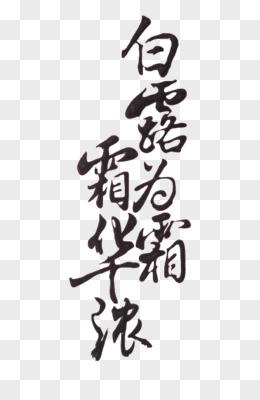 白露为霜
霜华浓